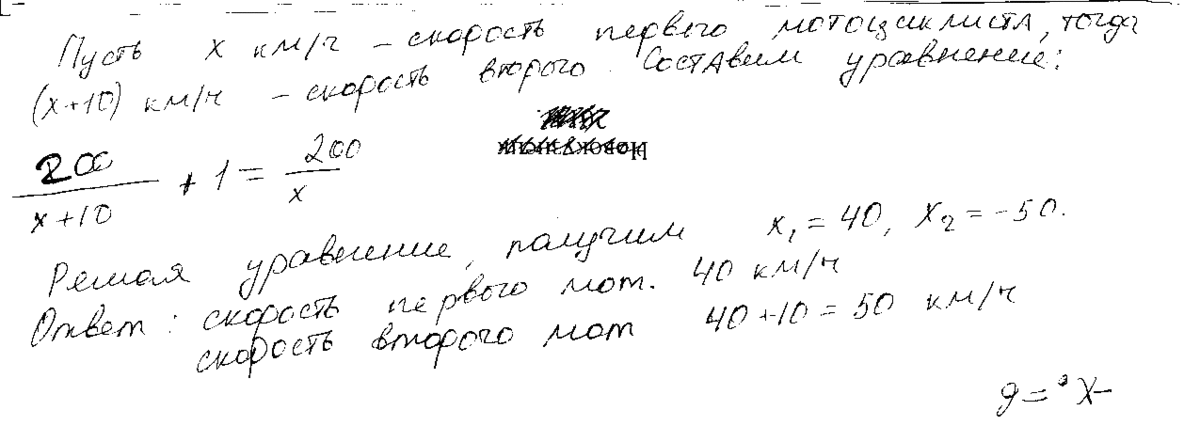 Пусть x км/ч – скорость первого мотоциклиста, тогда
(x+10) км/ч – скорость второго. Составим уравнение:
200/(x+10) + 1 = 200/x
Решая уравнение, получим x₁ = 40, x₂ = -50.
Ответ: скорость первого мот. 40 км/ч
скорость второго мот 40+10 = 50 км/ч